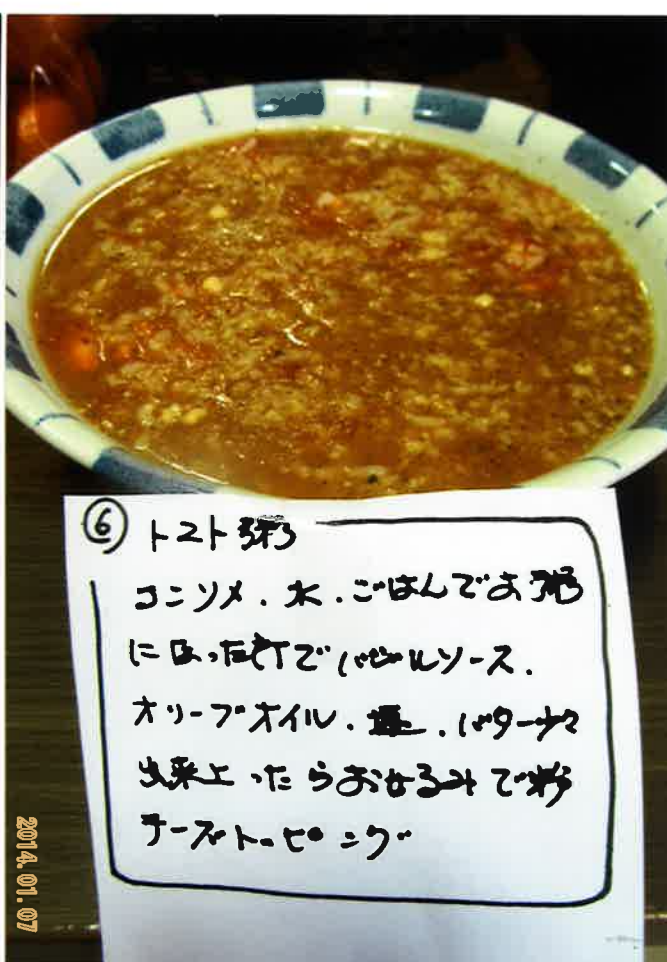 ⑥ トマト粥
コンソメ、水、ごはんでお粥
になった所でバジルソース、
オリーブオイル、塩、バター少々
出来上ったらおこのみで粉
チーズトッピング
2014.01.07